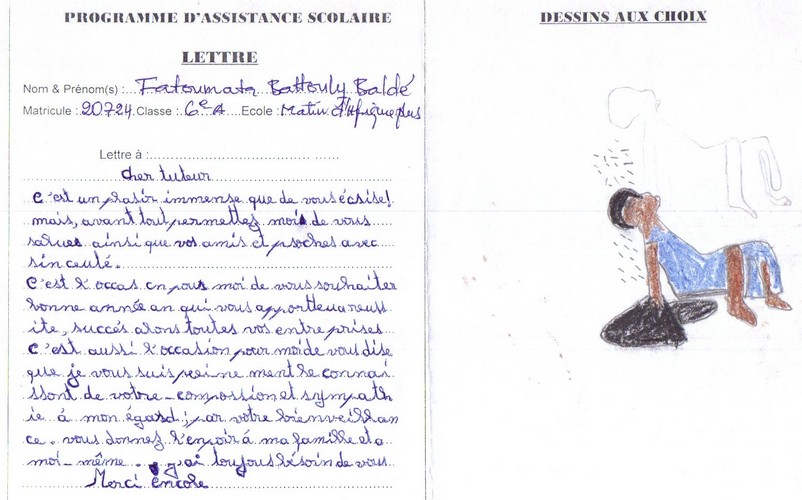 PROGRAMME D'ASSISTANCE SCOLAIRE
LETTRE
Nom & Prénom(s) : Fatoumata Battouly Baldé
Matricule : 20724 Classe : 6e A Ecole : Matin d'Afrique plus
Lettre à :
Cher tuteur
C'est un plasir immense que de vous écrire!
mais, avant tout permettez moi de vous
saluer ainsi que vos amis et proches avec
sinceuté.
C'est l'occas on pour moi de vous souhaiter
bonne année an qui vous apportteua reuss
ite, succés alons toutes vos entreprises
C'est aussi l'occasion pour moi de vous dise
que je vous suis pleine ment le connai
ssont de votre - compossion et sympath
ie á mon égard ; par votre bienveillan
ce. vous donnez l'enpoir á ma famille et a
moi - même. j'ai toujous bésoin de vous
Merci encore
DESSINS AUX CHOIX